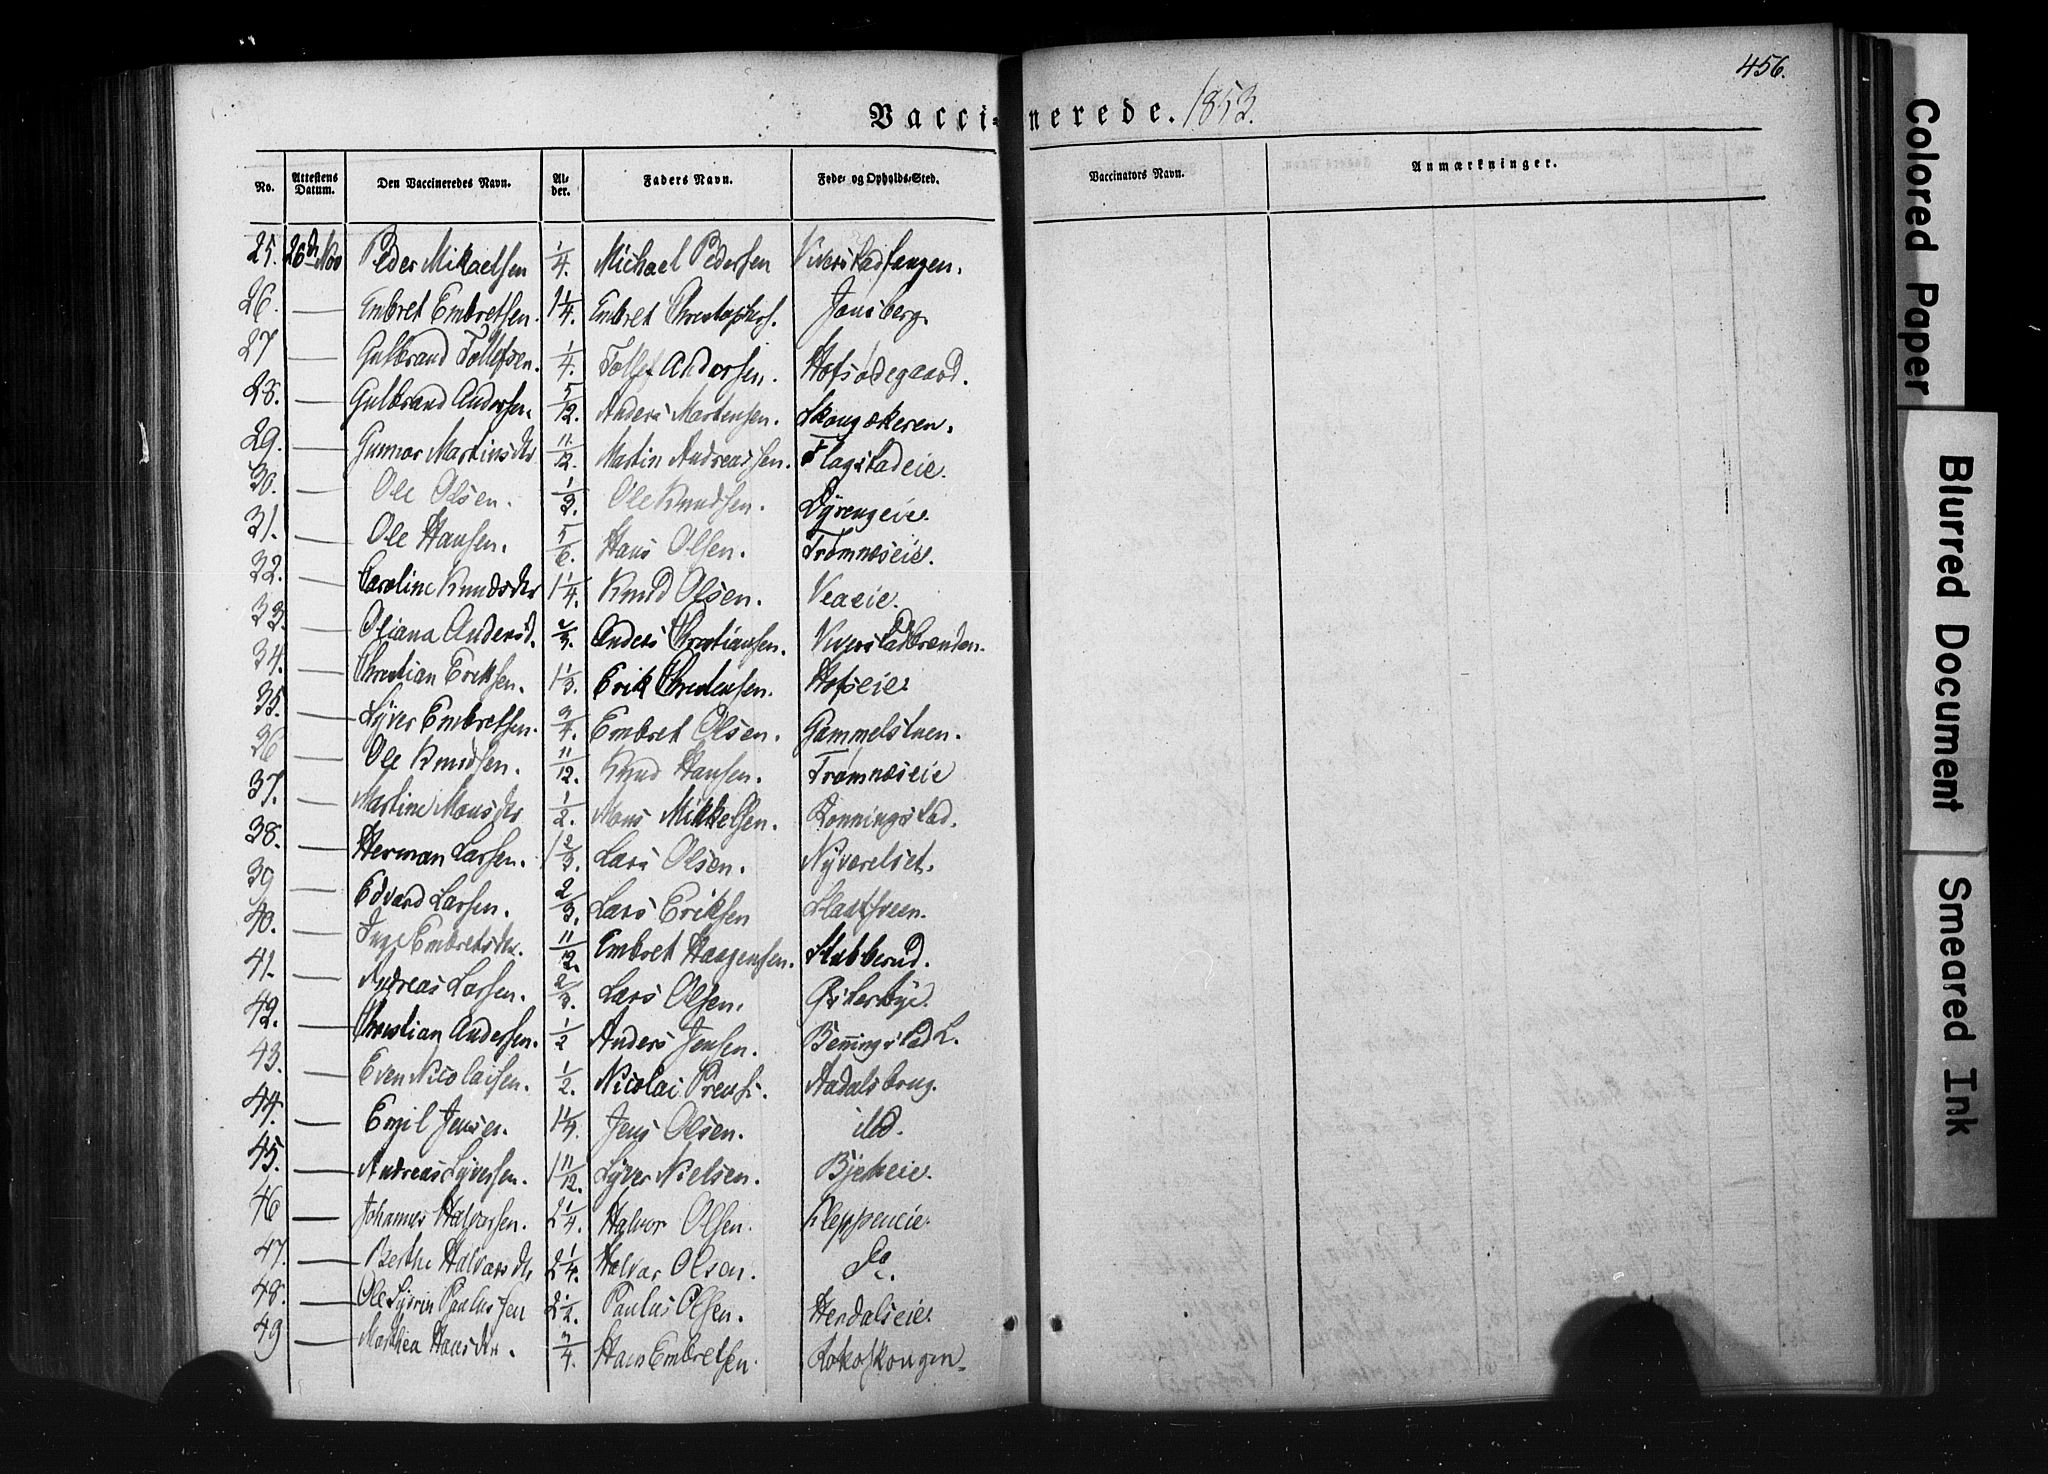 456.
Vaccinerede. 1853.
No. Attestens Datum. Den Vaccineredes Navn. Alder. Faders Navn. Føde- og Opholds-Sted. Vaccinators Navn. Anmærkninger.
25. 26de Nov Peder Mikaelsen 1/4. Michael Pedersen
26. — Embret Embretsen. 1 1/4. Embret Christophers. Jonsberg.
27 — Gulbrand Tollefsen. 1/4. Tollef Andersen. Hofsødegaard.
28. — Gulbrand Andersen. 5/12. Anders Martensen. Skougakeren.
29. — Gunnar Martinsdtr 11/12. Martin Andreassen. Flagstadeie.
30. — Ole Olsen. 1/2. Ole Knudsen. Dyrengeie.
31. — Ole Hansen. 5/6. Hans Olsen. Tromnæseie.
32. — Caroline Knudsdtr 1 1/4. Knud Olsen. Veaeie.
33. — Oliana Andersd. 2/3. Anders Christiansen.
34. — Christian Eriksen. 1 1/3. Erik Christensen. Hofseie.
35. — Syver Embretsen. 3/4. Embret Olsen. Gammelstuen.
36 — Ole Knudsen. 11/12. Knud Hansen. Tromnæseie
37. — Martine Monsdtr 1/2. Mons Mikkelsen. Konningstad.
38. — Herman Larsen. 1 2/3. Lars Olsen. Nyverelset.
39 — Edvard Larsen. 2/3. Lars Eriksen
40. — Inge Embretsdtr. 11/12. Embret Haagensen. Stubberud.
41. — Andreas Larsen. 2/3. Lars Olsen. Østerbye.
42. — Christian Andersen. 1/2 Anders Jensen. Benningstad L.
43. — Even Nicolaisen. 1/2. Nicolai Aadalsbrug.
44. — Emil Jensen. 1 1/3. Jens Olsen. ibd.
45. — Andreas Syversen. 1 11/12. Syver Nielsen. Bjerkeie.
46 — Johannes Halvorsen. 2 1/4. Halvor Olsen. Kleppeneie.
47. — Berthe Halvorsdtr 2 1/4. Halvor Olsen. Do.
48. — Ole Syvrin Paulussen 2 1/2. Paulus Olsen. Herdalseie.
49 — Marthea Hansdtr. 3/4. Hans Embretsen. Rokoskougen
Colored Paper
Blurred Document
Smeared Ink